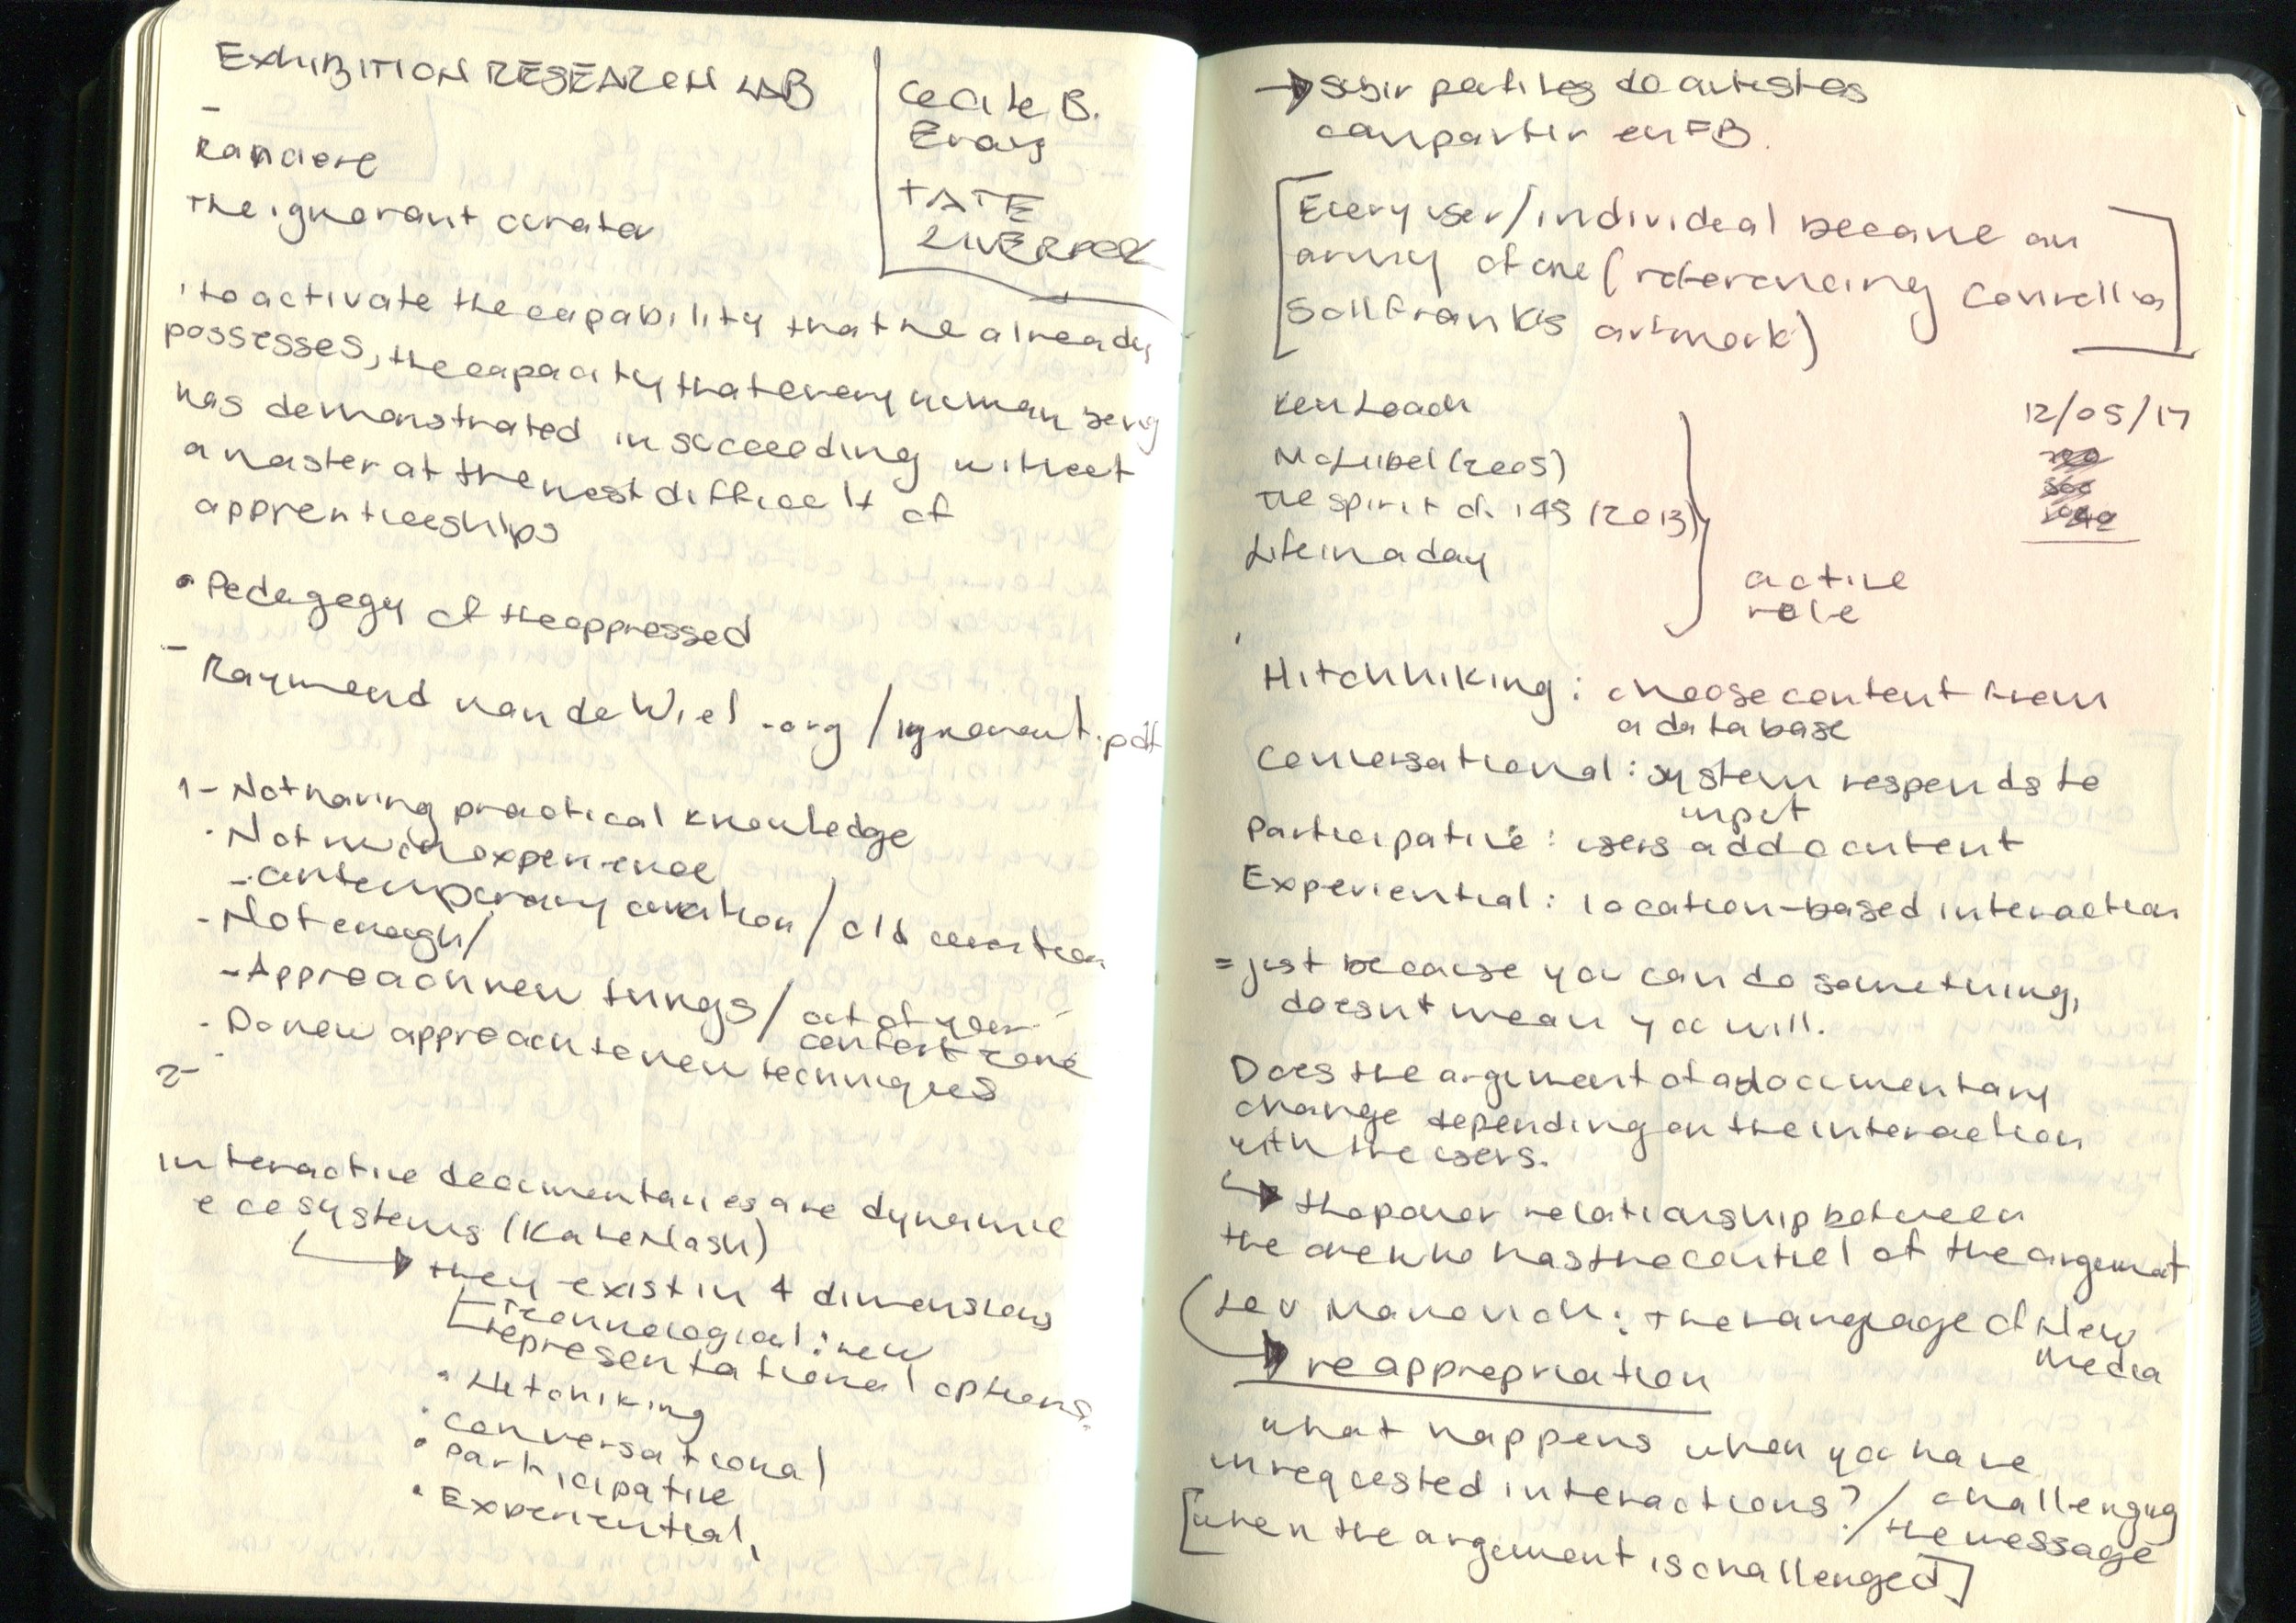 EXHIBITION RESEARCH LAB
Cecile B.
Evans
TATE
LIVERPOOL
-
Ranciere
The ignorant curator
'to activate the capability that he already
possesses, the capacity that every human being
has demonstrated in succeeding without
a master at the most difficult of
apprenticeships
• Pedagogy of the oppressed
-
Raymond van de Wiel .org / ignorant.pdf
1- Not having practical knowledge
· Not much experience
- contemporary curation / old curation
- Not enough /
- Approach new things / out of your
comfort zone
· Do new approach to new techniques
2-
interactive documentaries are dynamic
ecosystems (Kate Nash)
→ they exist in 4 dimensions
Technological: new
representational options.
• Hitchiking
• conversational
• participative
• Experiential,
→ subir perfiles de artistas
compartir en FB.
[Every user/individual became an
army of one (referencing Cornelia
Sollfrank's artwork)]
Ken Loach
McLibel (2005)
The spirit of '45 (2013)
Life in a day
active
role
12/05/17
Hitchhiking: choose content from
a database
Conversational: system responds to
input
Participative: users add content
Experiential: location-based interaction
= just because you can do something,
doesn't mean you will.
Does the argument of a documentary
change depending on the interaction
with the users.
→ the power relationship between
the one who has the control of the argument
Lev Manovich: The Language of New
Media
→ reappropriation
what happens when you have
unrequested interactions? / challenging
the message
[when the argument is challenged]